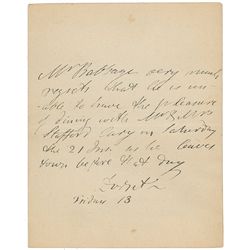 Mr Babbage very much
regrets that he is un-
able to have the pleasure
of dining with Mr & Mrs
Stafford Cary on Saturday
the 21 Inst. as he leaves
town before that day
Dorset
13